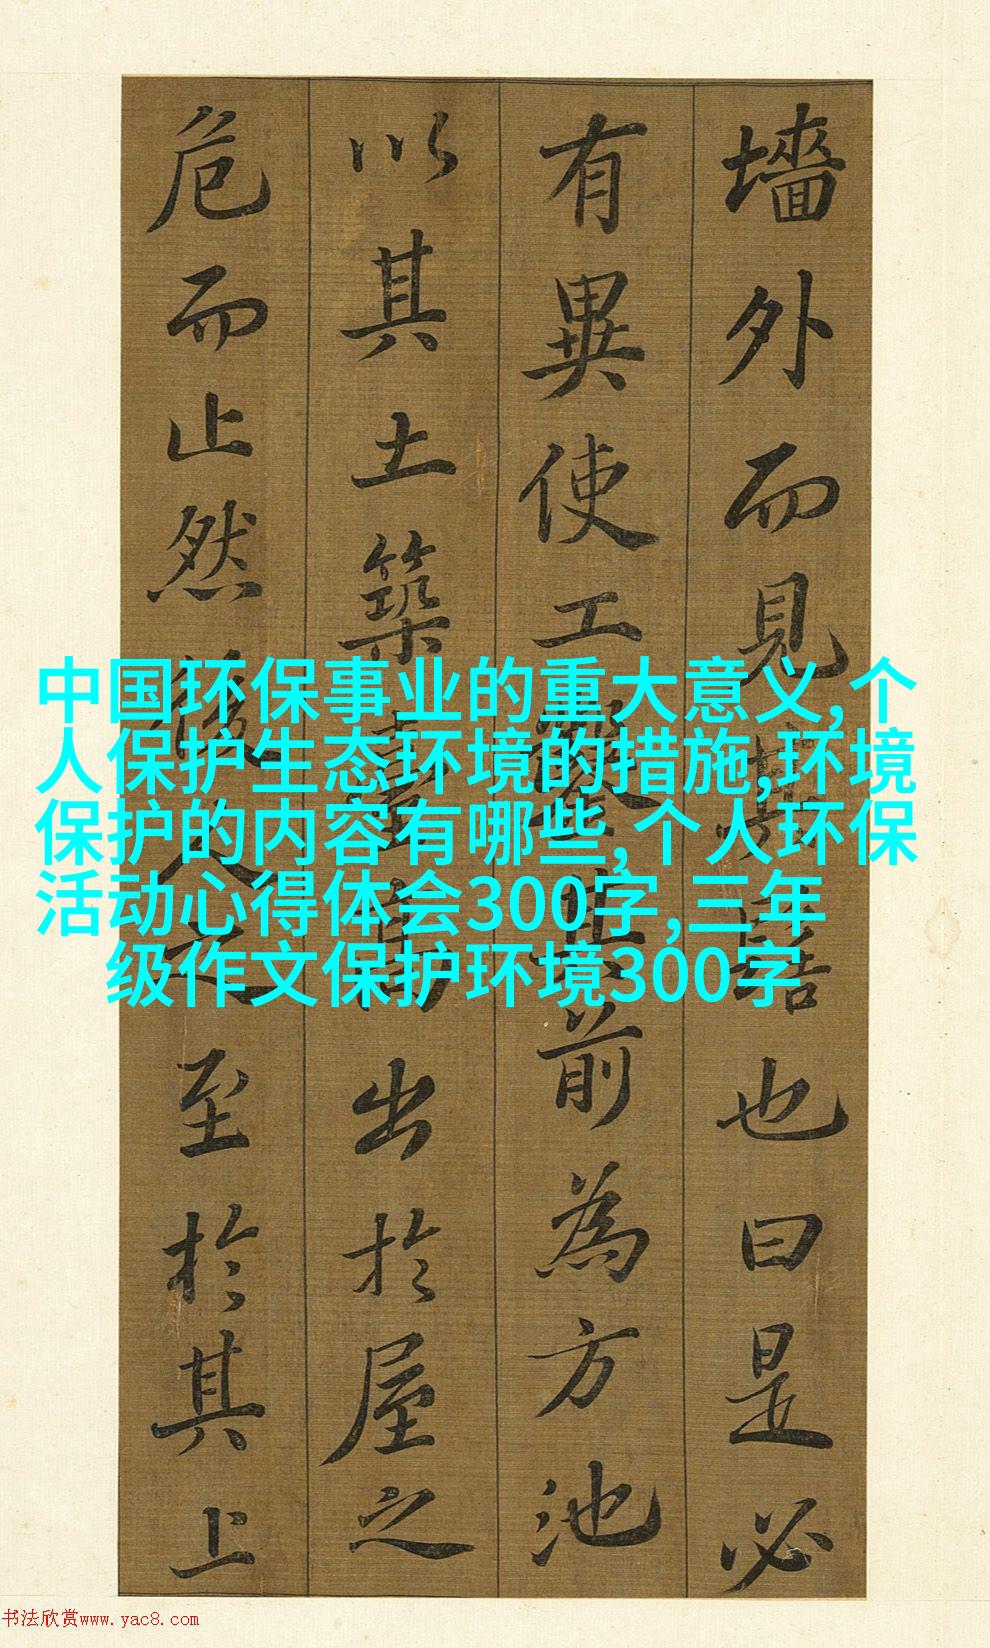 墻外而見其髻也曰是必
有異使工鑿其前為方池
以其土築臺高出於屋之
危而止然後人之至於其上
中国环保事业的重大意义,个
人保护生态环境的措施,环境
保护的内容有哪些,个人环保
活动心得体会300字,三年
级作文保护环境300字
书法欣赏www.yac8.com